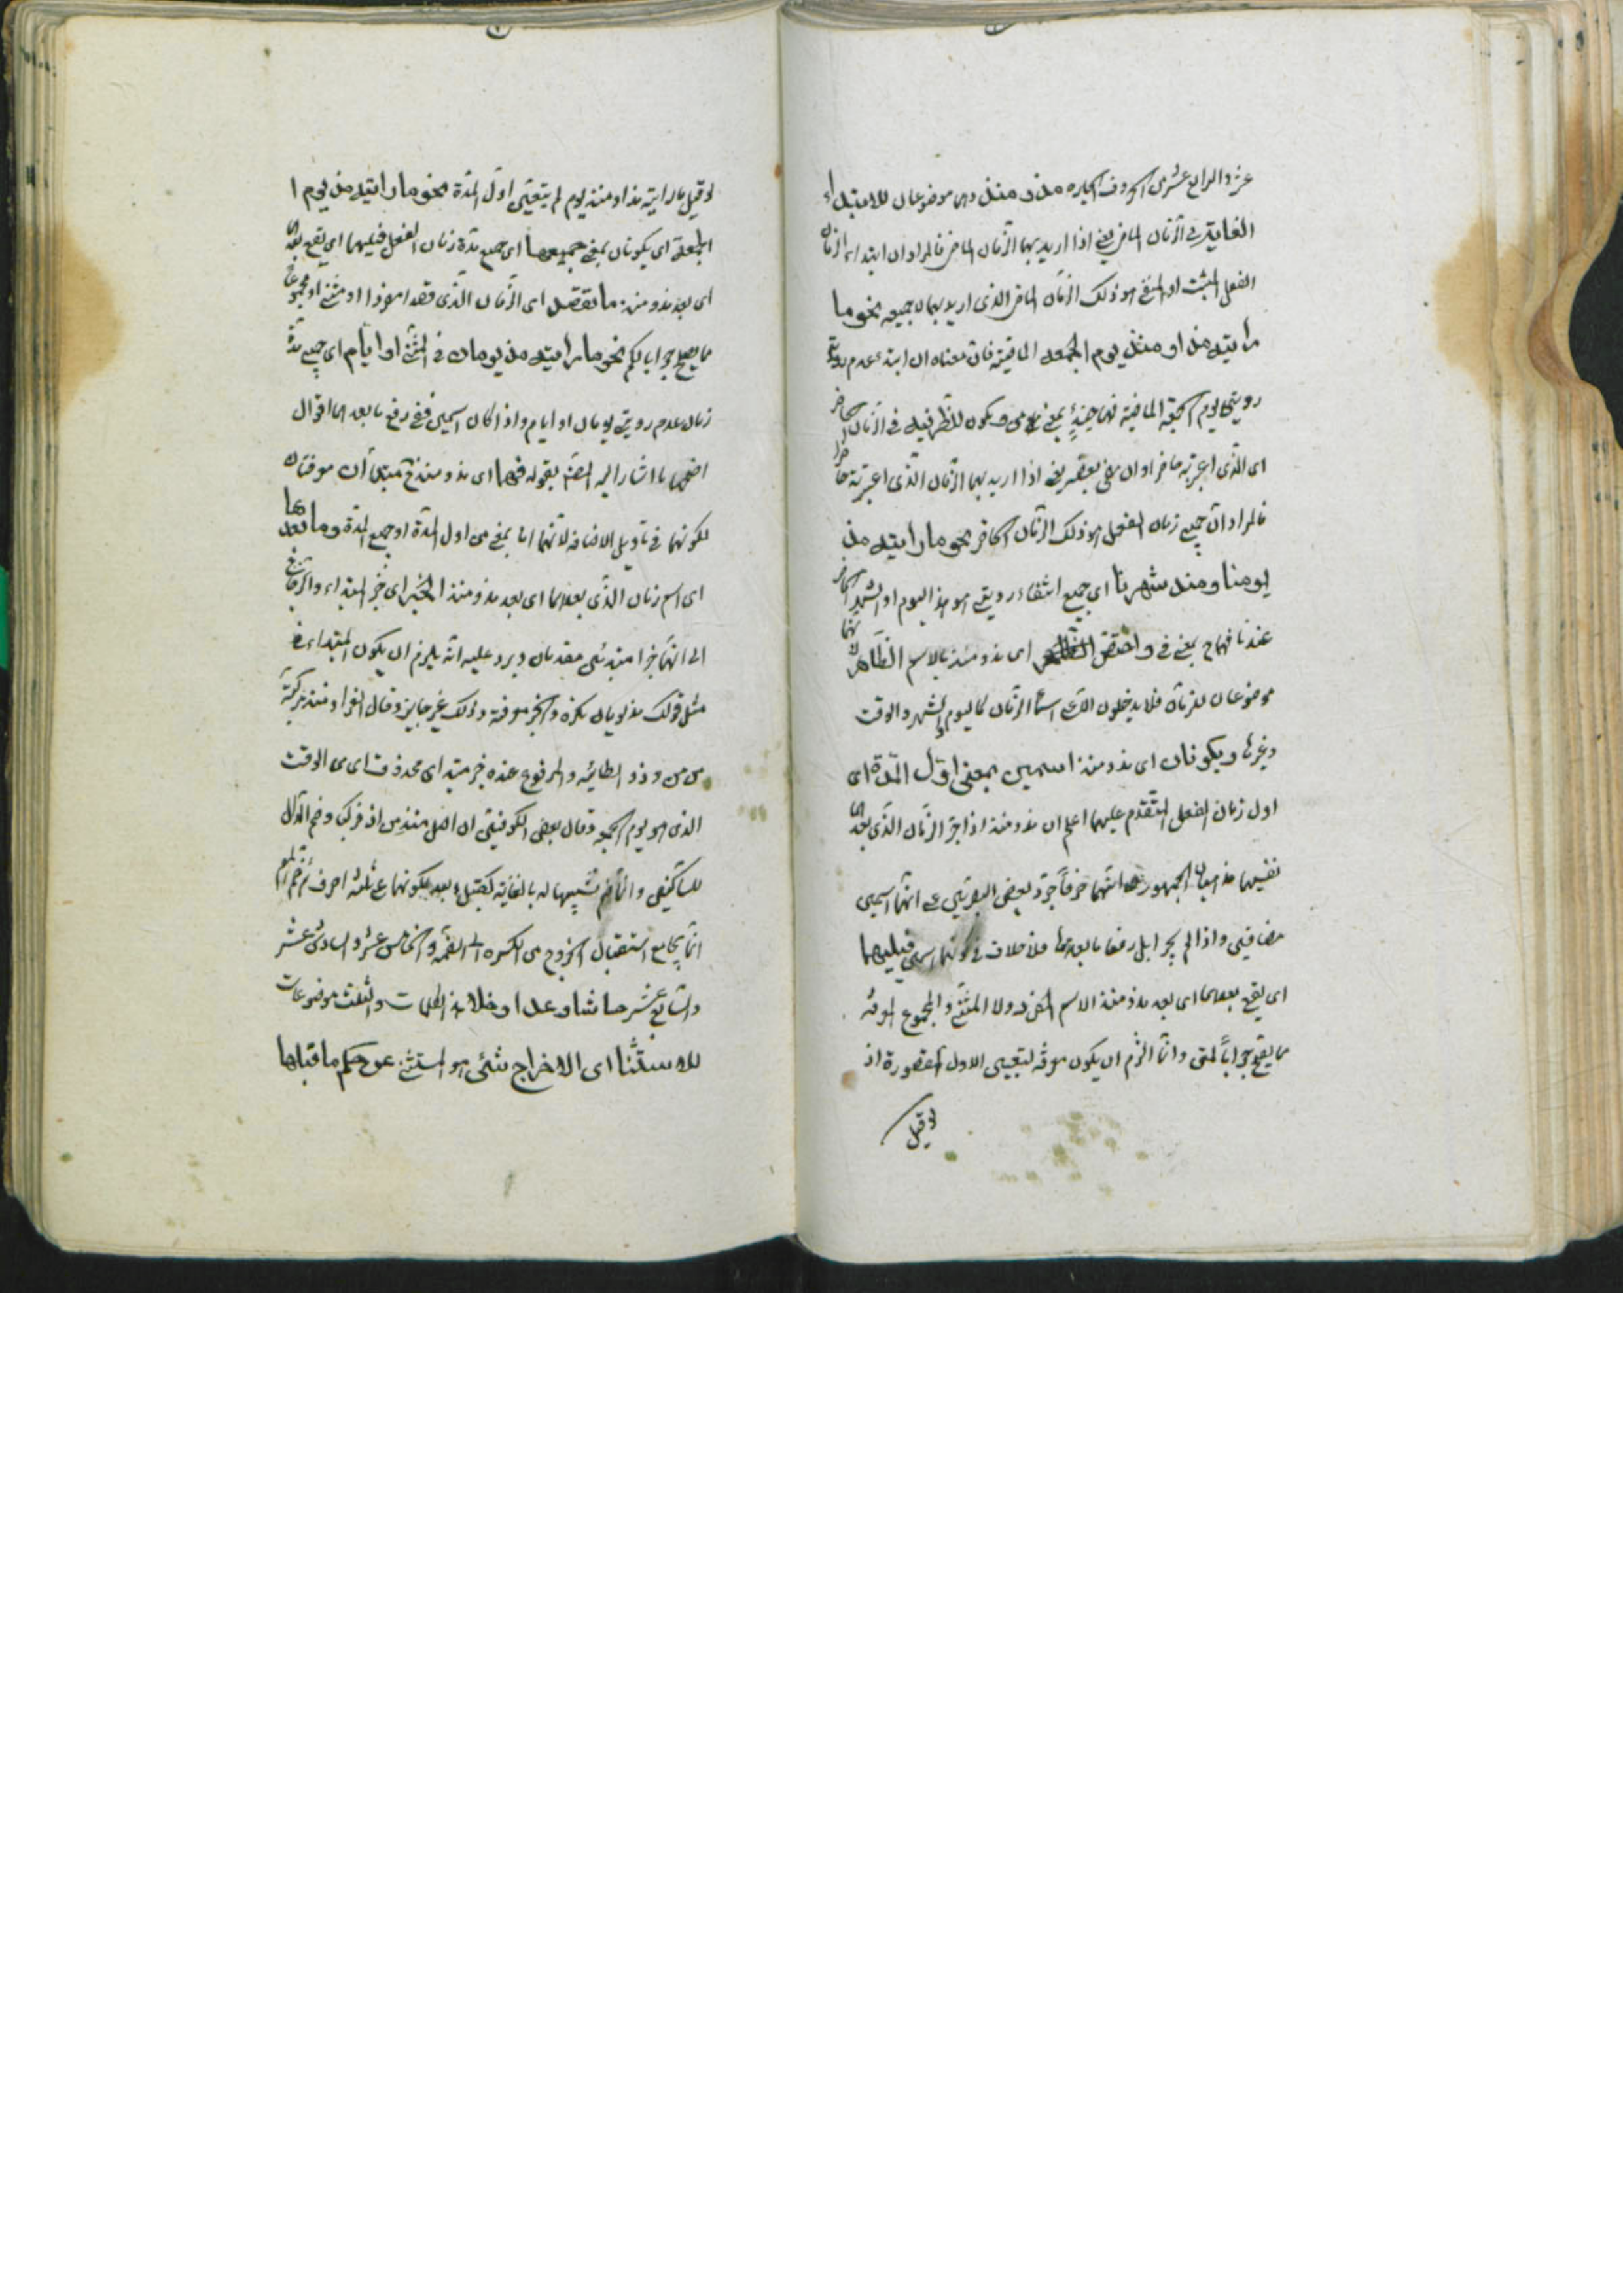 عشر والرابع عشر من الحروف الجاره مذ و منذ وهى موضوعان للابتداء
الغاية فى الزمان الماضى يعنى اذا اريد بهما الزمان الماضى فالمراد ان ابتداء الزمان
الفعل المثبت او المنفى هو ذلك الزمان الماضى الذى اريد بهما لا جميعه نحو ما
رايته مذ او منذ يوم الجمعه الماضية فان معناه ان ابتداء عدم رويتى
رويتى يوم الجمعة الماضية فهما حينئذ بمعنى من و يكون للظرفية فى الزمان الحاضر
اى الذى اعتبرته حاضرا وان مضى بعضه يعنى اذا اريد بهما الزمان الذى اعتبرته حاضرا
فالمراد ان جميع زمان الفعل هو ذلك الزمان الحاضر نحو ما رايته مذ
يومنا و منذ شهرنا اى جميع انتفاء رويتى هو هذا اليوم او الشهر الحاضر
عندنا فهما ح بمعنى فى و اختص اى مذ و منذ بالاسم الظاهر لانهما
موضوعان للزمان فلا يدخلون الا على اسماء الزمان كاليوم والشهر والوقت
وغيرها ويكونان اى مذ و منذ اسمين بمعنى اول المدة اى
اول زمان الفعل المتقدم عليهما اعلم ان مذ و منذ اذا جر الزمان الذى بعدهما
ففيهما مذهبان الجمهور على انهما حرفا جر و بعض البصريين على انهما اسمين
مضافين واذا لم يجر ابل رفعا ما بعدهما فلا خلاف فى كونهما اسمين فيليهما
اى يقع بعدهما اى بعد مذ و منذ الاسم المفرد ولا المثنى والمجموع المعرفه
مما يقع جوابا لمتى وانما الزم ان يكون معرفه لتعيين الاول المقصورة اذ
لو قيل
لو قيل ما رايته مذ او منذ يوم لم يتعين اول المدة نحو ما رايته مذ يوم ا
الجمعة اى يكونان بمعنى جميعها اى جميع مدة زمان الفعل فيليهما اى يقع بعدهما
اى بعد مذ و منذ ما تقصد اى الزمان الذى قصد مفردا او مثنى او مجموعا
مما يصلح جوابا لكم نحو ما رايته مذ يومان فى المثنى او ايام اى جميع مدة
زمان عدم رويتى يومان او ايام و اذا كان اسمين ففى رفع ما بعدهما اقوال
اصحها ما اشار اليه المصنف بقوله فهما اى مذ و منذ ح مبتدأ ان معرفتان
لكونهما فى تاويل الاضافه لانهما اما بمعنى من اول المدة او جميع المدة وما بعدها
اى اسم زمان الذى بعدهما اى بعد مذ و منذ الخبر اى خبر المبتداء و الزجاجى
الى انهما خبرا مبتدئين مقدمان ويرد عليه انه يلزم ان يكون المبتداء فى
مثل قولك مذ يومان نكره والخبر معرفة وذلك غير جايز و قال الفراء و منذ مركبة
من من و ذو الطائيه والمرفوع عنده خبر مبتداى محذوف اى من الوقت
الذى هو يوم الجمعه وقال بعض الكوفيين ان اصل منذ من اذ فركب وضم الذال
للساكنين وانما ضم تشبيها له بالغاية كقبل و بعد لكونهما على ثلثه احرف ثم ضم الميم
انما يجامع استقبال الخروج من الكسره الى الضمه و الخامس عشر و السادس عشر
و السابع عشر حاشا و عدا و خلا هذه الكلمات و الثلث موضوعات
للاستثنا اى الاخراج شئى هو المستثنى عن حكم ما قبلها